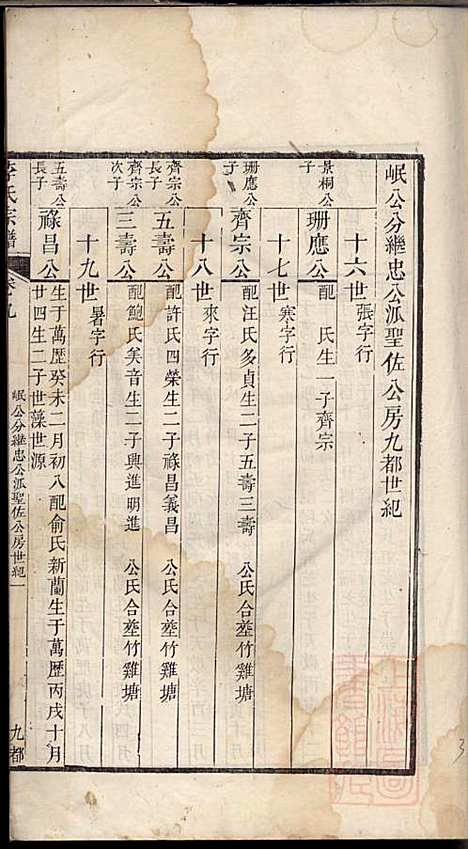 岷公分繼忠公派聖佐公房九都世紀
十六世張字行
景桐公子
珊應公
配 氏生一子齊宗
十七世寒字行
珊應公子
齊宗公
配汪氏多貞生二子五壽三壽 公氏合塟竹雞塘
十八世來字行
齊宗公長子
五壽公
配許氏四榮生二子祿昌義昌 公氏合塟竹雞塘
齊宗公次子
三壽公
配鮑氏美音生二子興進明進 公氏合塟竹雞塘
十九世暑字行
五壽公長子
祿昌公
生于萬歷癸未二月初八配俞氏新蘭生于萬歷丙戌十月
廿四生二子世藻世源
氏宗譜
卷九
岷公分繼忠公派聖佐公房世紀
九都
3